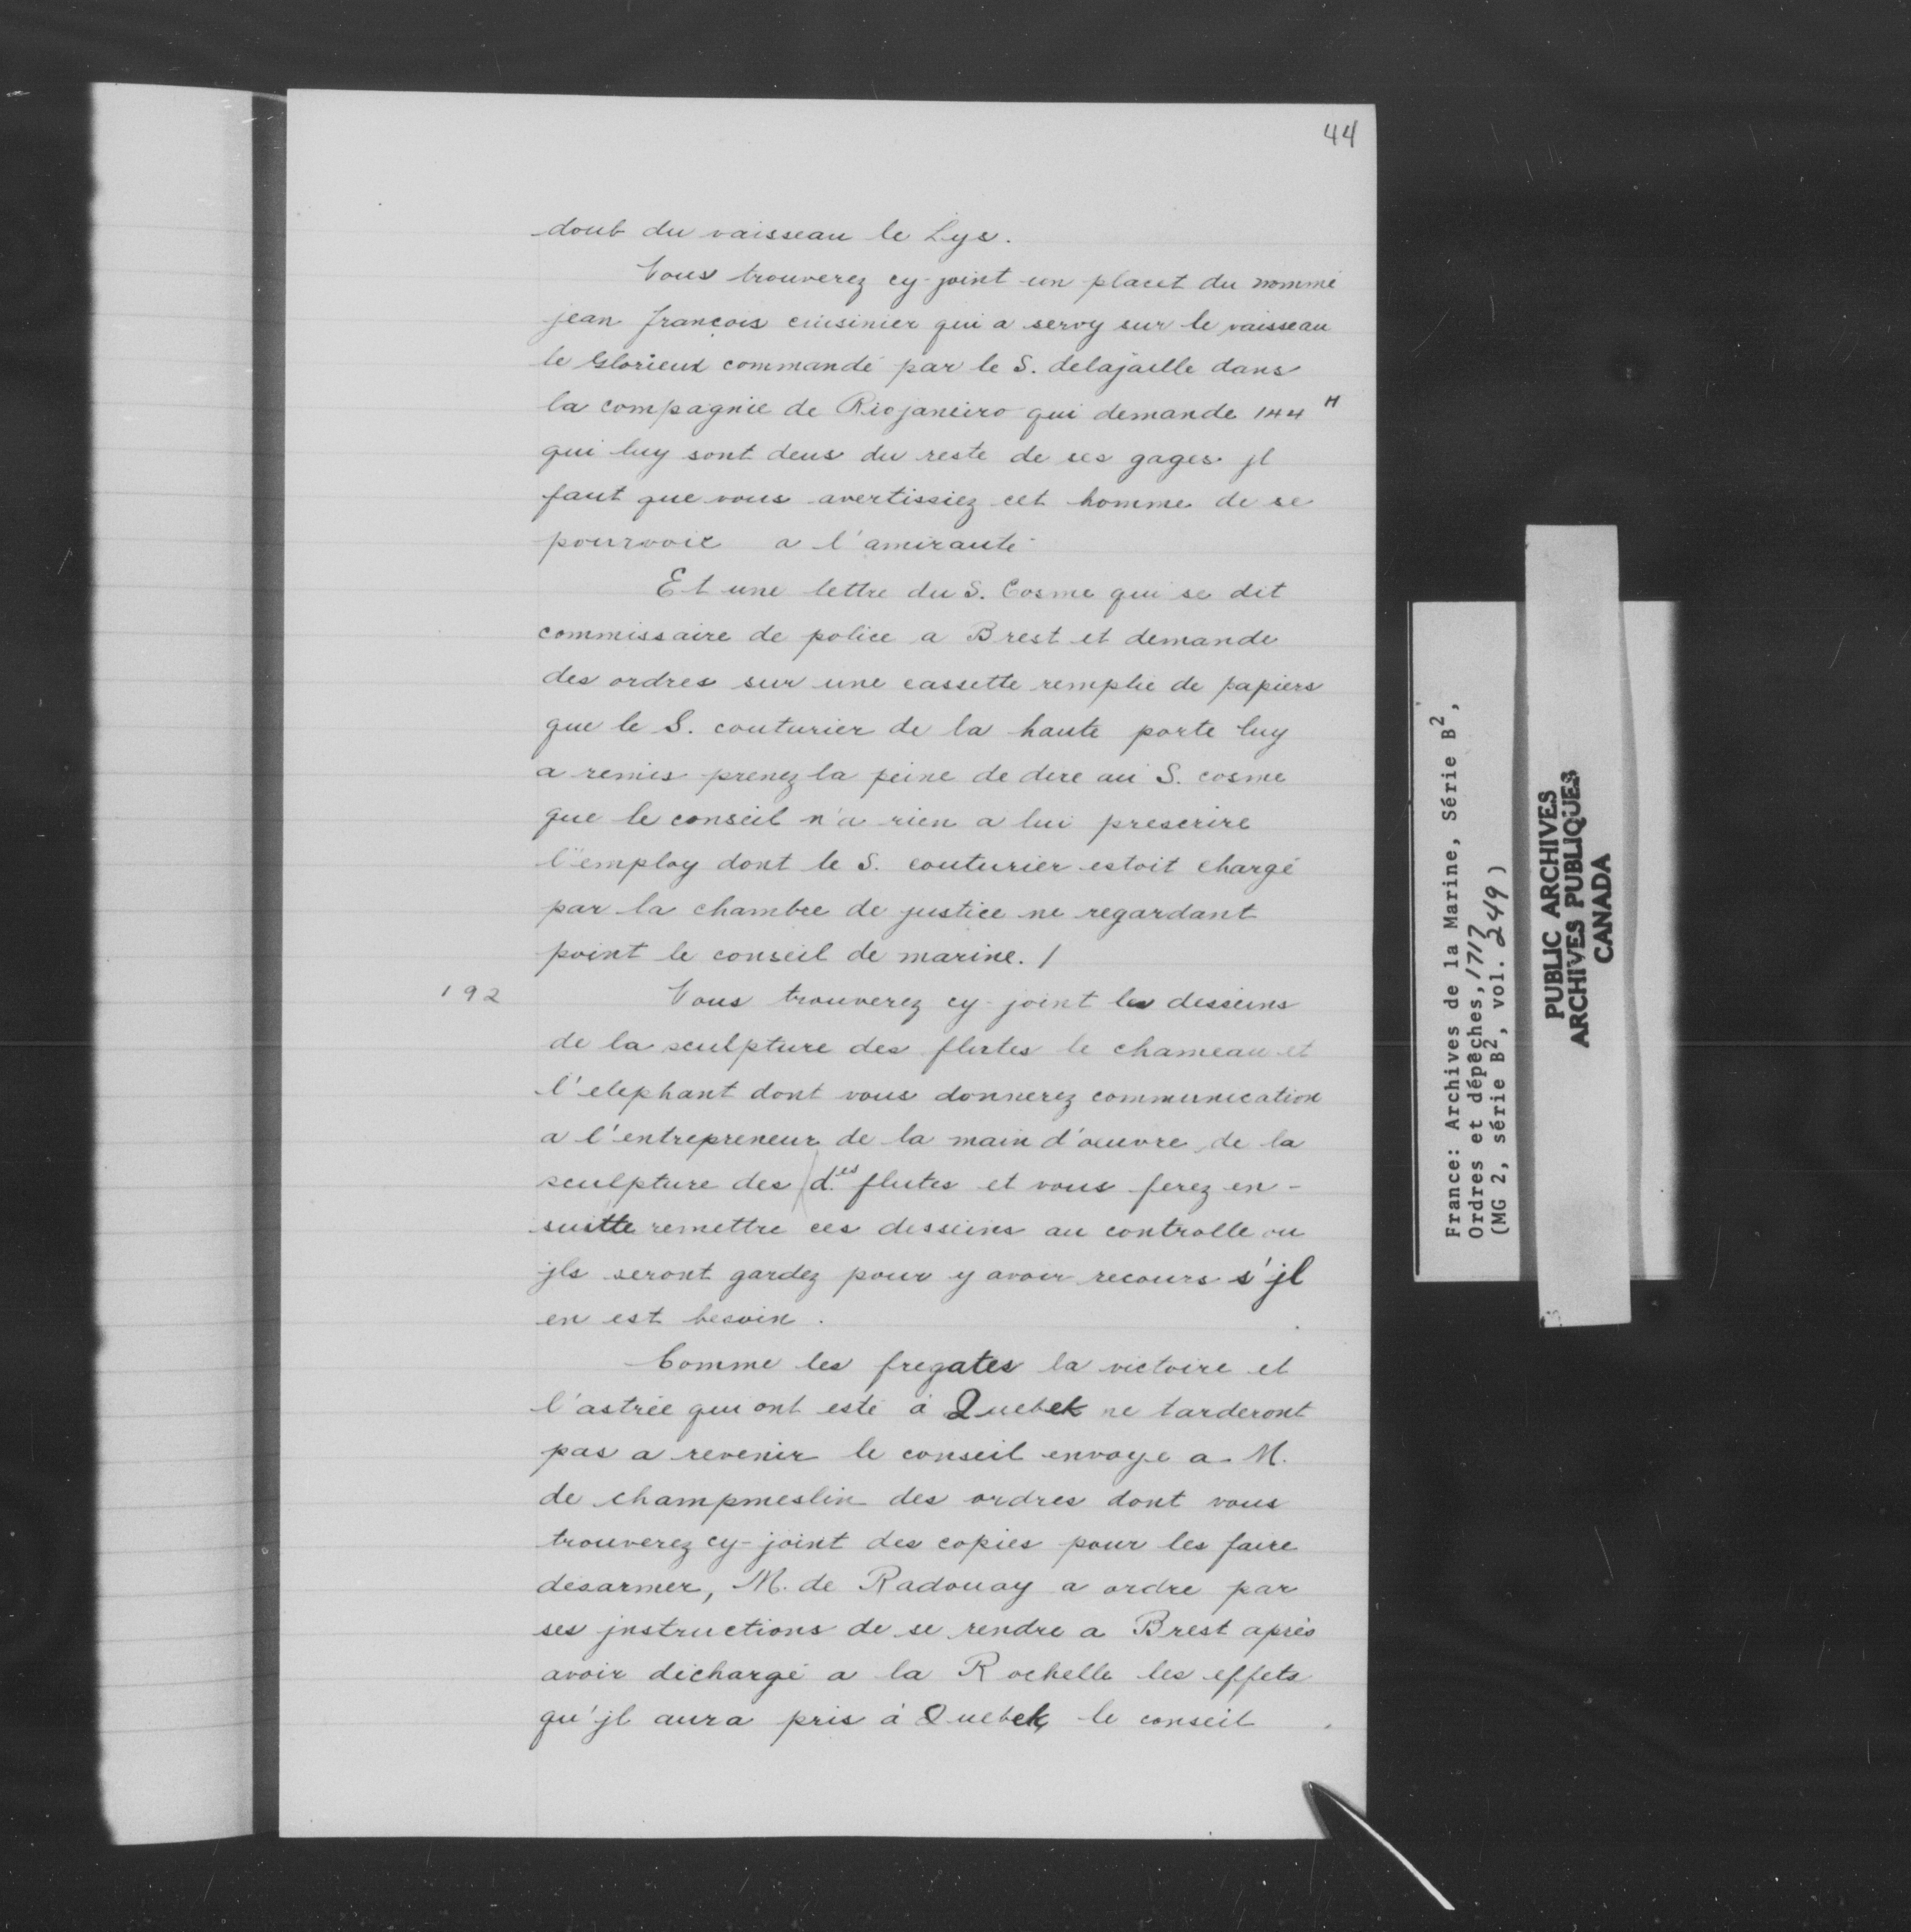 44
doub du vaisseau le Lys.
Vous trouverez cy-joint un placet du nommé
jean françois cuisinier qui a servy sur le vaisseau
le Glorieux commandé par le S. delajaille dans
la compagnie de Riojaneiro qui demande 144 ₶
qui luy sont deus du reste de ses gages jl
faut que vous avertissiez cet homme de se
pourvoir a l'amirauté
Et une lettre du S. Cosme qui se dit
commissaire de police a Brest et demande
des ordres sur une cassette remplie de papiers
que le S. couturier de la haute porte luy
a remis prenez la peine de dire au S. cosme
que le conseil n'a rien a lui prescrire
l'employ dont le S. couturier estoit chargé
par la chambre de justice ne regardant
point le conseil de marine. /
192
Vous trouverez cy-joint les desseins
de la sculpture des flutes le chameau et
l'elephant dont vous donnerez communication
a l'entrepreneur de la main d'oeuvre de la
sculpture des d.es flutes et vous ferez en-
suitte remettre ces desseins au controlle ou
jls seront gardez pour y avoir recours s'jl
en est besoin.
Comme les fregates la victoire et
l'astrée qui ont esté à Quebek ne tarderont
pas a revenir le conseil envoye a M.
de champmeslin des ordres dont vous
trouverez cy-joint des copies pour les faire
desarmer, M. de Radouay a ordre par
ses jnstructions de se rendre a Brest après
avoir déchargé a la Rochelle les effets
qu'jl aura pris à Quebek le conseil
France: Archives de la Marine, Série B2,
Ordres et dépêches, 1717
(MG 2, série B2, vol. 249)
PUBLIC ARCHIVES
ARCHIVES PUBLIQUES
CANADA